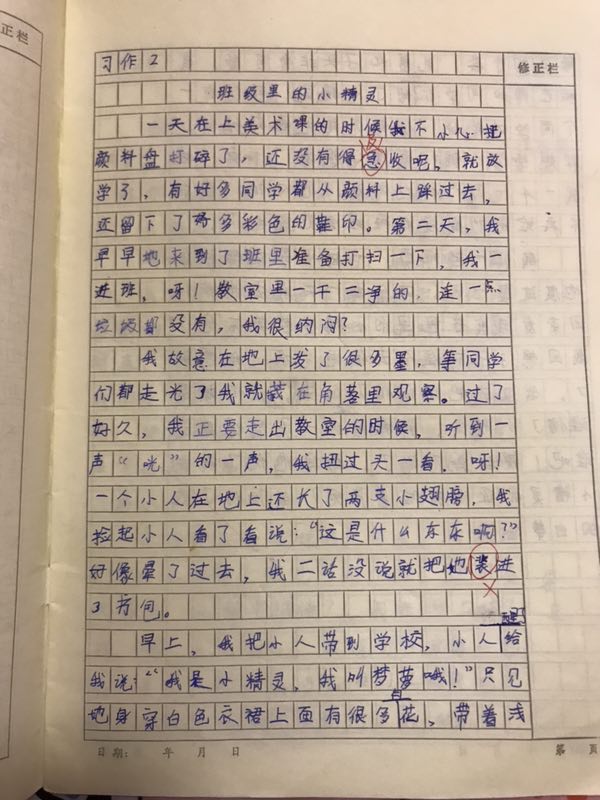 正栏
修正栏
习作2
班级里的小精灵
一天在上美术课的时候我不小心把
颜料盘打碎了，还没有得急收呢，就放
学了，有好多同学都从颜料上踩过去，
还留下了好多彩色的鞋印。第二天，我
早早地来到了班里准备打扫一下，我一
进班，呀！教室里一干二净的，连一点
垃圾都没有，我很纳闷？
我故意在地上发了很多墨，等同学
们都走光了我就藏在角落里观察。过了
好久，我正要走出教室的时候，听到一
声“咣”的一声，我扭过头一看，呀！
一个小人在地上还长了两支小翅膀，我
捡起小人看了看说：“这是什么东东啊？”
好像晕了过去，我二话没说就把她装进
了书包。
醒
早上，我把小人带到学校，小人给
我说：“我是小精灵，我叫梦萝哦！”只见
白
她身穿白色衣裙上面有很多花，带着浅
日期： 年 月 日
第 页